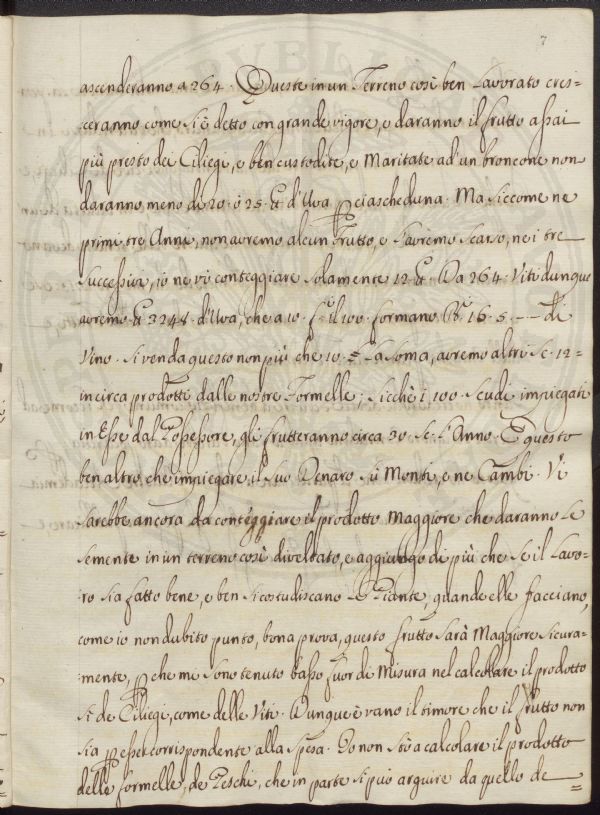 7
ascenderanno a 264. Queste in un Terreno così ben Lavorato cres=
ceranno come si è detto con grande vigore, e daranno il frutto assai
più presto dei Ciliegi, e ben custodite, e Maritate ad un broncone non
daranno, meno di 20. ò 25. d'Uva ciascheduna. Ma siccome ne
primi tre Anni, non avremo alcun frutto, e l'avremo scarso, nei tre
successivi, io ne vò conteggiare solamente 12. Da 264. Viti dunque
avremo 3248. d'Uva, che a 10. il 100. formano 16. 5. di
Vino. Si venda questo non più che 10. la Soma, avremo altri Sc. 12=
incirca prodotti dalle nostre Formelle; Sicchè i 100. Scudi impiegati
in Esse dal Possessore, gli frutteranno circa 30. Sc. l'Anno. E questo
ben altro, che impiegare il suo Denaro sù Monti, e ne Cambi. Vi
sarebbe ancora da conteggiare il prodotto Maggiore che daranno le
semente in un terreno così diveltato, e aggiungo di più che se il Lavo=
ro sia fatto bene, e ben si costudiscano le Piante, quando elle facciano,
come io non dubito punto, bona prova, questo frutto sarà Maggiore sicura=
mente, che mi sono tenuto basso fuor di Misura nel calcolare il prodotto
sì de Ciliegi, come delle Viti. Dunque è vano il timore che il frutto non
sia esser corrispondente alla spesa. Io non stò a calcolare il prodotto
delle formelle de Peschi, che in parte si può arguire da quello de=